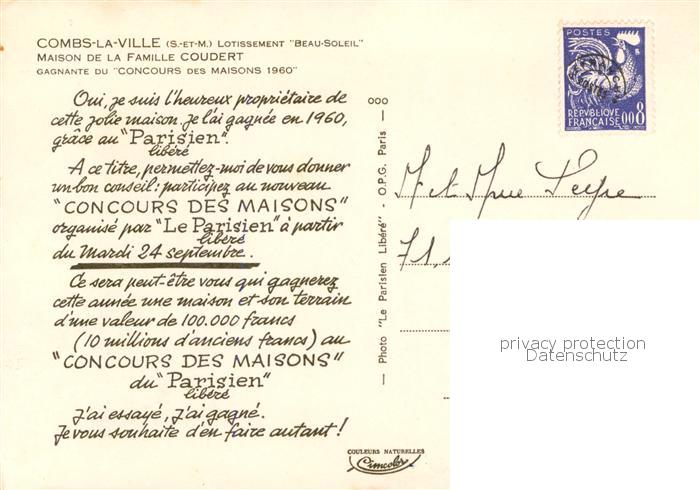 COMBS-LA-VILLE (S.-ET-M.) LOTISSEMENT "BEAU-SOLEIL"
MAISON DE LA FAMILLE COUDERT
GAGNANTE DU "CONCOURS DES MAISONS 1960"
Oui, je suis l'heureux propriétaire de
cette jolie maison. Je l'ai gagnée en 1960,
grâce au "Parisien".
libéré
A ce titre, permettez-moi de vous donner
un bon conseil : participez au nouveau
"CONCOURS DES MAISONS"
organisé par "Le Parisien" à partir
libéré
du Mardi 24 septembre.
Ce sera peut-être vous qui gagnerez
cette année une maison et son terrain
d'une valeur de 100.000 francs
(10 millions d'anciens francs) au
"CONCOURS DES MAISONS"
du "Parisien"
libéré
J'ai essayé, j'ai gagné.
Je vous souhaite d'en faire autant !
COULEURS NATURELLES
Cimcolor
000
— Photo "Le Parisien Libéré" - O.P.G. Paris —
POSTES
REPVBLIQUE
FRANÇAISE 0008
M et Mme
71,
privacy protection
Datenschutz